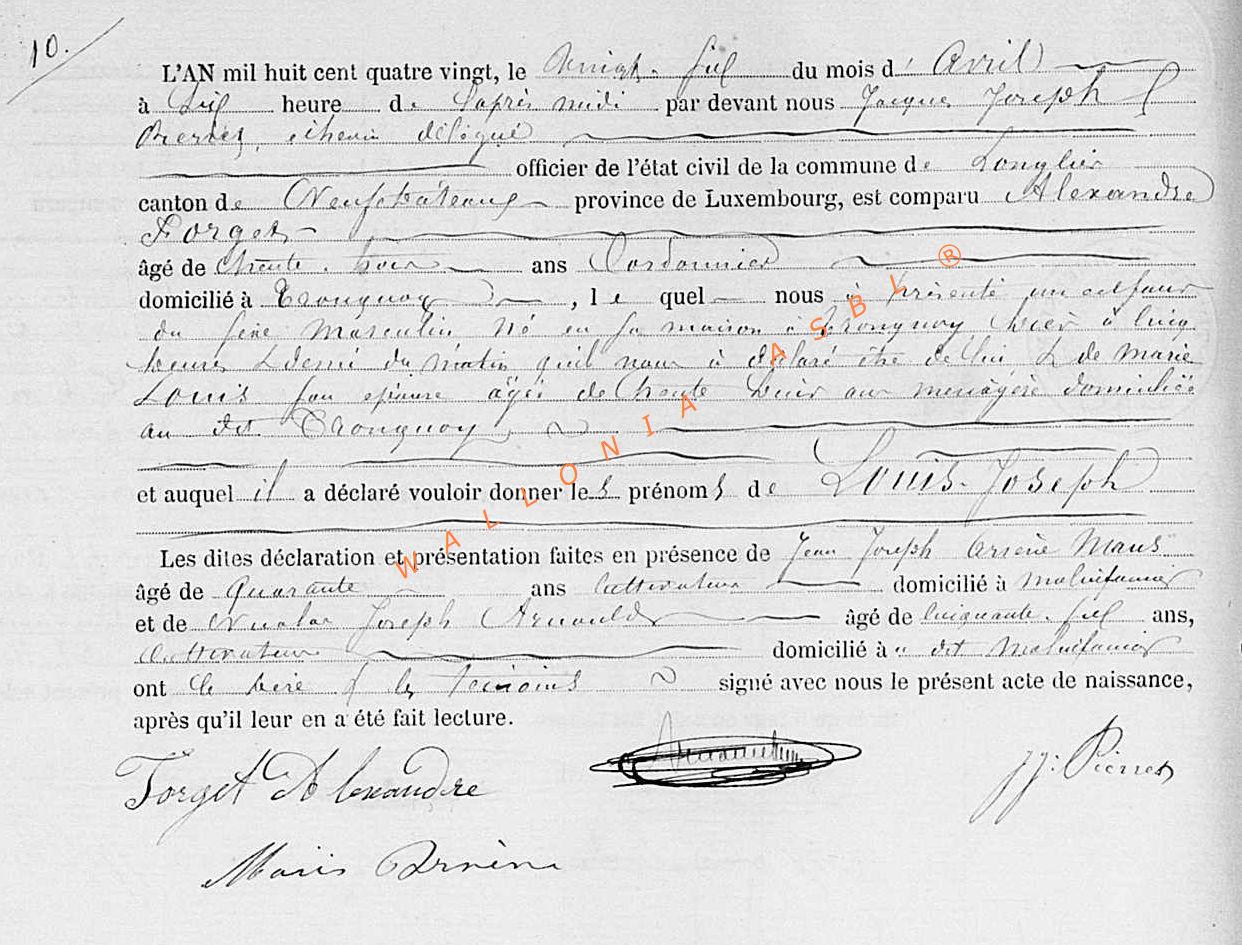 10.
L'AN mil huit cent quatre vingt, le Vingt-six du mois d' Avril
à six heure de l'après midi par devant nous Jacques Joseph
Pierret, échevin délégué
officier de l'état civil de la commune de Longlier
canton de Neufchâteau province de Luxembourg, est comparu Alexandre
Forget
âgé de trente-trois ans Cordonnier
domicilié à Tronquoy, le quel nous à présenté un enfant
du sexe masculin né en sa maison à Tronquoy hier à cinq
heures & demi du matin qu'il nous à déclaré être de lui & de Marie
Louis son épouse âgée de trente huit ans menagère domiciliée
au dit Tronquoy
et auquel il a déclaré vouloir donner les prénoms de Louis-Joseph
Les dites déclaration et présentation faites en présence de Jean Joseph Arsène Maus
âgé de Quarante ans Cultivateur domicilié à Molinfaing
et de Nicolas Joseph Arnould âgé de cinquante-six ans,
Cultivateur domicilié à u dit Molinfaing
ont le père & les témoins signé avec nous le présent acte de naissance,
après qu'il leur en a été fait lecture.
Forget Alexandre
JJ. Pierret
Arsène
WALLONIA ASBL ®